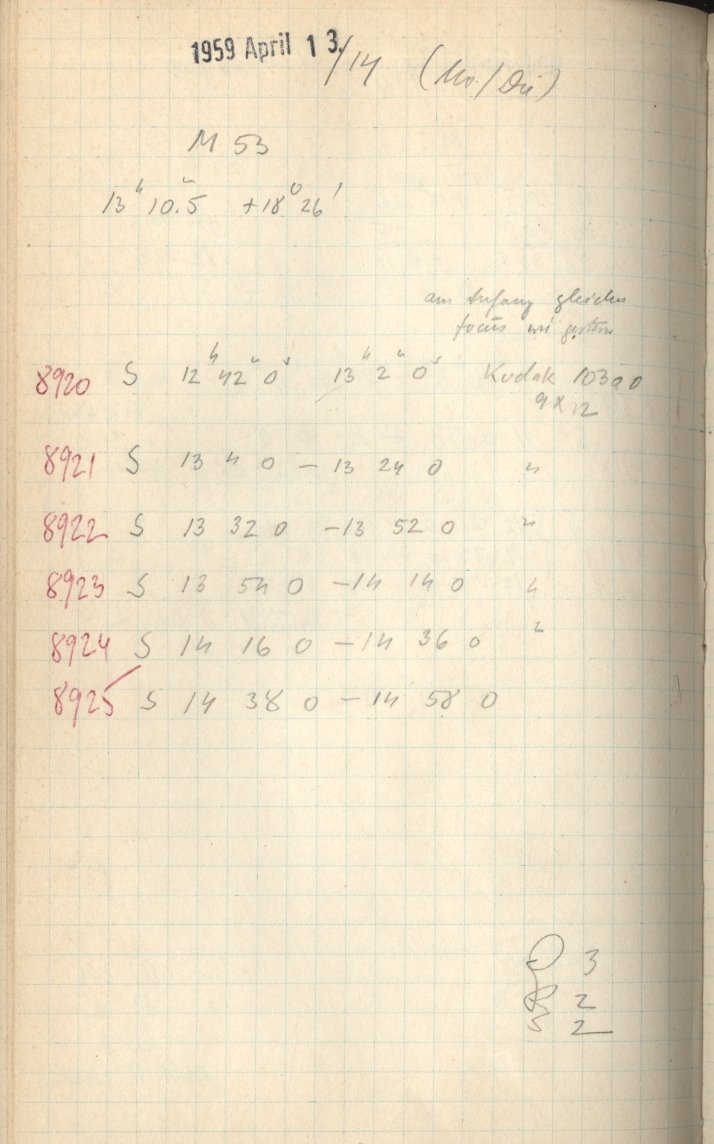 1959 April 13./14 (Mo./Die)
M 53
13ʰ 10.ᵐ5 +18° 26'
am Anfang gleicher
focus wie gestern
8920 S 12ʰ 42ᵐ 0ˢ 13ʰ 2ᵐ 0ˢ Kodak 103a0
9x12
8921 S 13 4 0 – 13 24 0 "
8922 S 13 32 0 – 13 52 0 "
8923 S 13 54 0 – 14 14 0 "
8924 S 14 16 0 – 14 36 0 "
8925 S 14 38 0 – 14 58 0
3
2
2